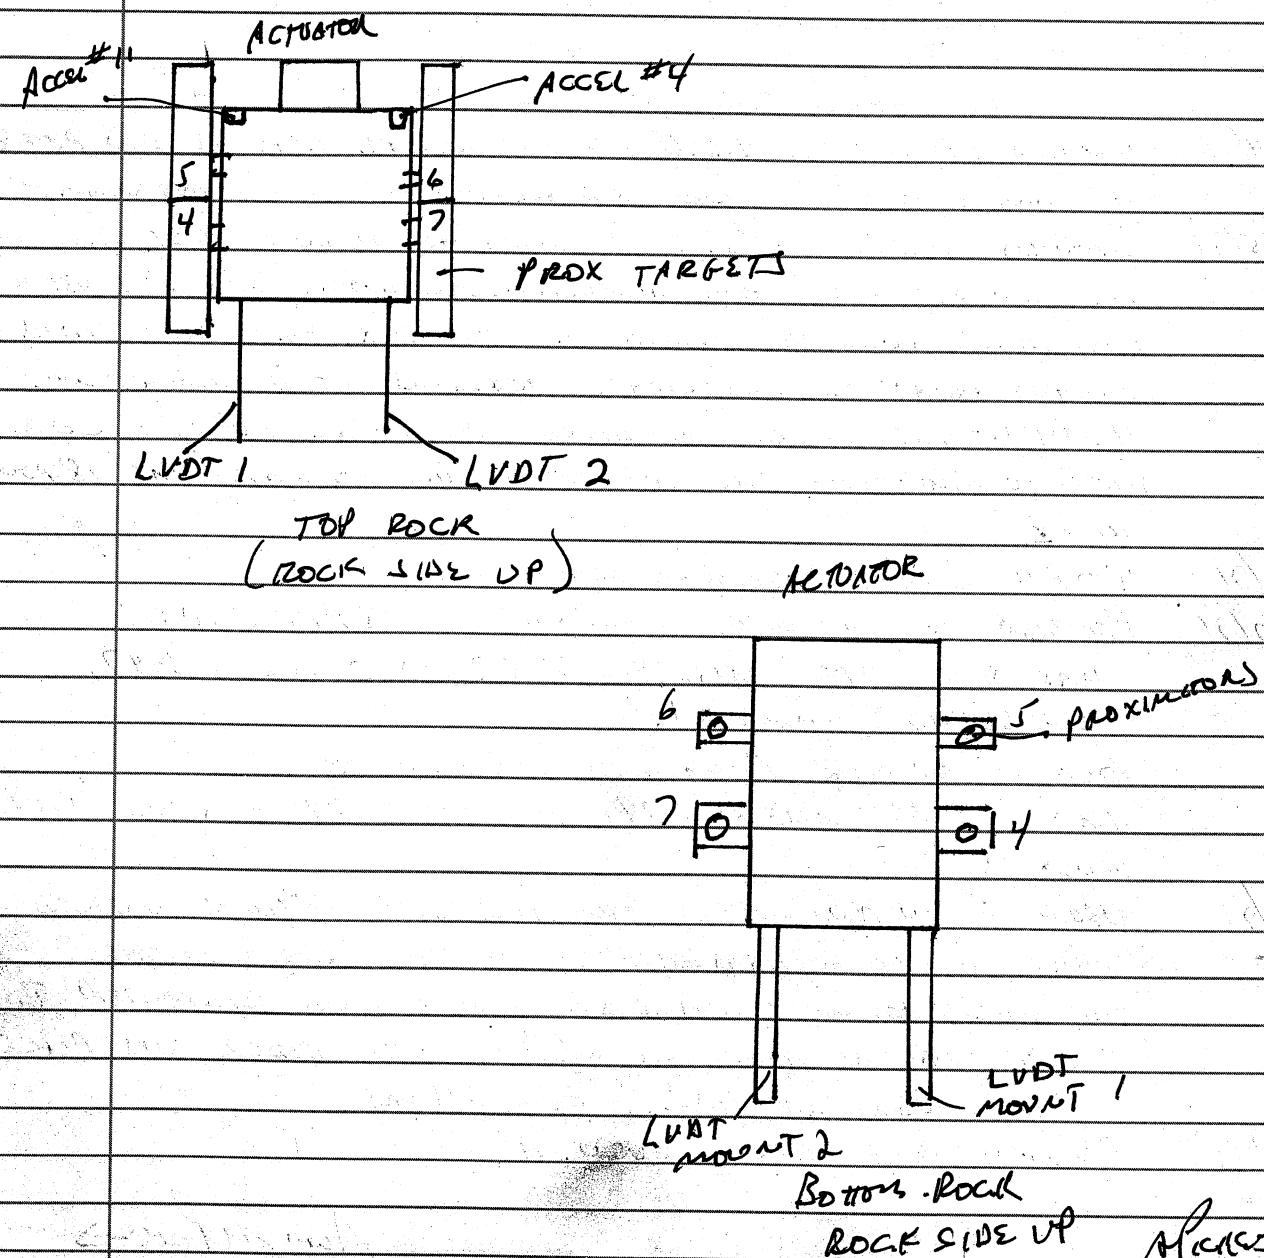 ACTUATOR
ACCEL #11
ACCEL #4
5
6
4
7
PROX TARGETS
LVDT 1
LVDT 2
TOP ROCK
(ROCK SIDE UP)
ACTUATOR
6
5
PROXIMITORS
7
4
LVDT
MOUNT 1
LVDT
MOUNT 2
BOTTOM ROCK
ROCK SIDE UP